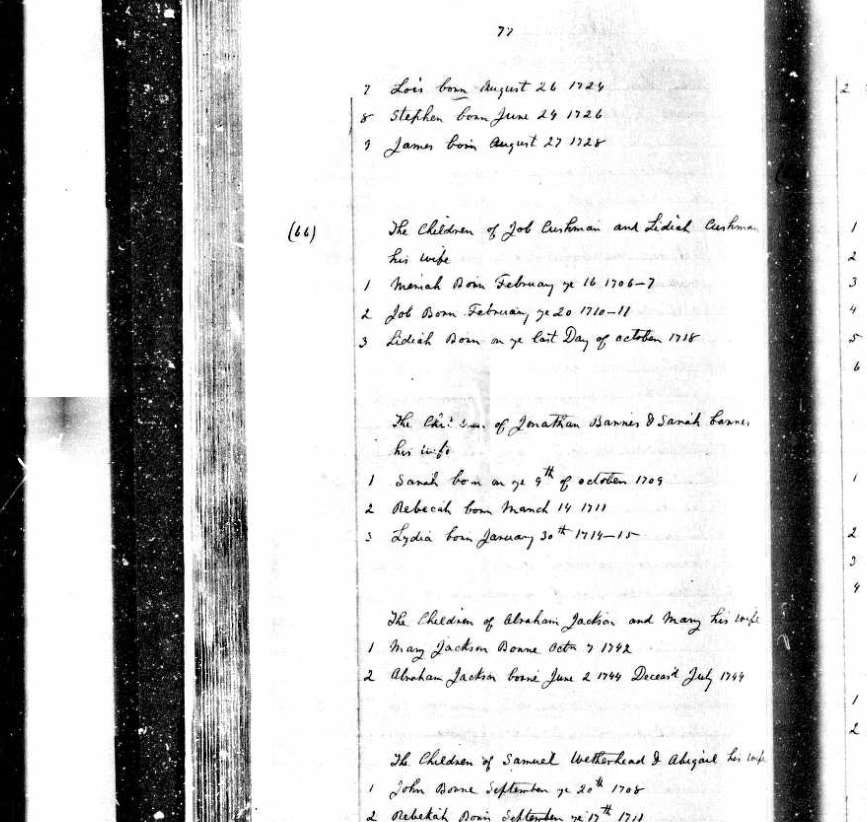 77
7 Lois born August 26 1724
8 Stephen born June 24 1726
9 James born August 27 1728
(66) The Children of Job Cushman and Lidiah Cushman
his wife
1 Meriah Born February ye 16 1706–7
2 Job Born February ye 20 1710–11
3 Lidiah Born on ye last Day of october 1718
The of Jonathan Barnes & Sarah barnes
his wife
1 Sarah born on ye 9th of october 1709
2 Rebecah born March 14 1711
3 Lydia born January 30th 1714–15
The Children of Abraham Jackson and Mary his wife
1 Mary Jackson Borne Octr 7 1742
2 Abraham Jackson borne June 2 1744 Deceasd July 1744
The Children of Samuel Wetherhead & Abigail his wife
1 John Borne September ye 20th 1708
2 Rebekah Born September ye 17th 1711
2
1
2
3
4
5
6
1
2
3
4
1
2